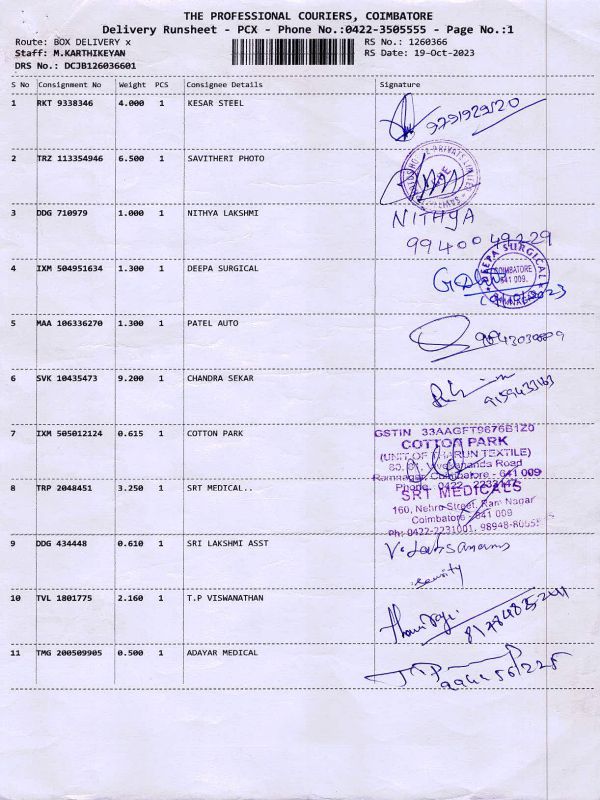 THE PROFESSIONAL COURIERS, COIMBATORE
Delivery Runsheet - PCX - Phone No.:0422-3505555 - Page No.:1
Route: BOX DELIVERY x
RS No.: 1260366
Staff: M.KARTHIKEYAN
RS Date: 19-Oct-2023
DRS No.: DCJB126036601
S No Consignment No Weight PCS Consignee Details Signature
1 RKT 9338346 4.000 1 KESAR STEEL
2 TRZ 113354946 6.500 1 SAVITHERI PHOTO
3 DDG 710979 1.000 1 NITHYA LAKSHMI NITHYA
9940049229
4 IXM 504951634 1.300 1 DEEPA SURGICAL
DEEPA SURGICAL
COIMBATORE
641 009.
5 MAA 106336270 1.300 1 PATEL AUTO
6 SVK 10435473 9.200 1 CHANDRA SEKAR
7 IXM 505012124 0.615 1 COTTON PARK
GSTIN 33AAGFT9676B1Z0
COTTON PARK
(UNIT OF THARUN TEXTILE)
Vivekananda Road
Ramnagar, Coimbatore - 641 009
Phone: 0422
8 TRP 2048451 3.250 1 SRT MEDICAL..
SRT MEDICALS
160, Nehru Street, Ram Nagar
Coimbatore - 641 009
Ph: 0422-2231001, 98948
9 DDG 434448 0.610 1 SRI LAKSHMI ASST
security
10 TVL 1801775 2.160 1 T.P VISWANATHAN
11 TMG 200509905 0.500 1 ADAYAR MEDICAL